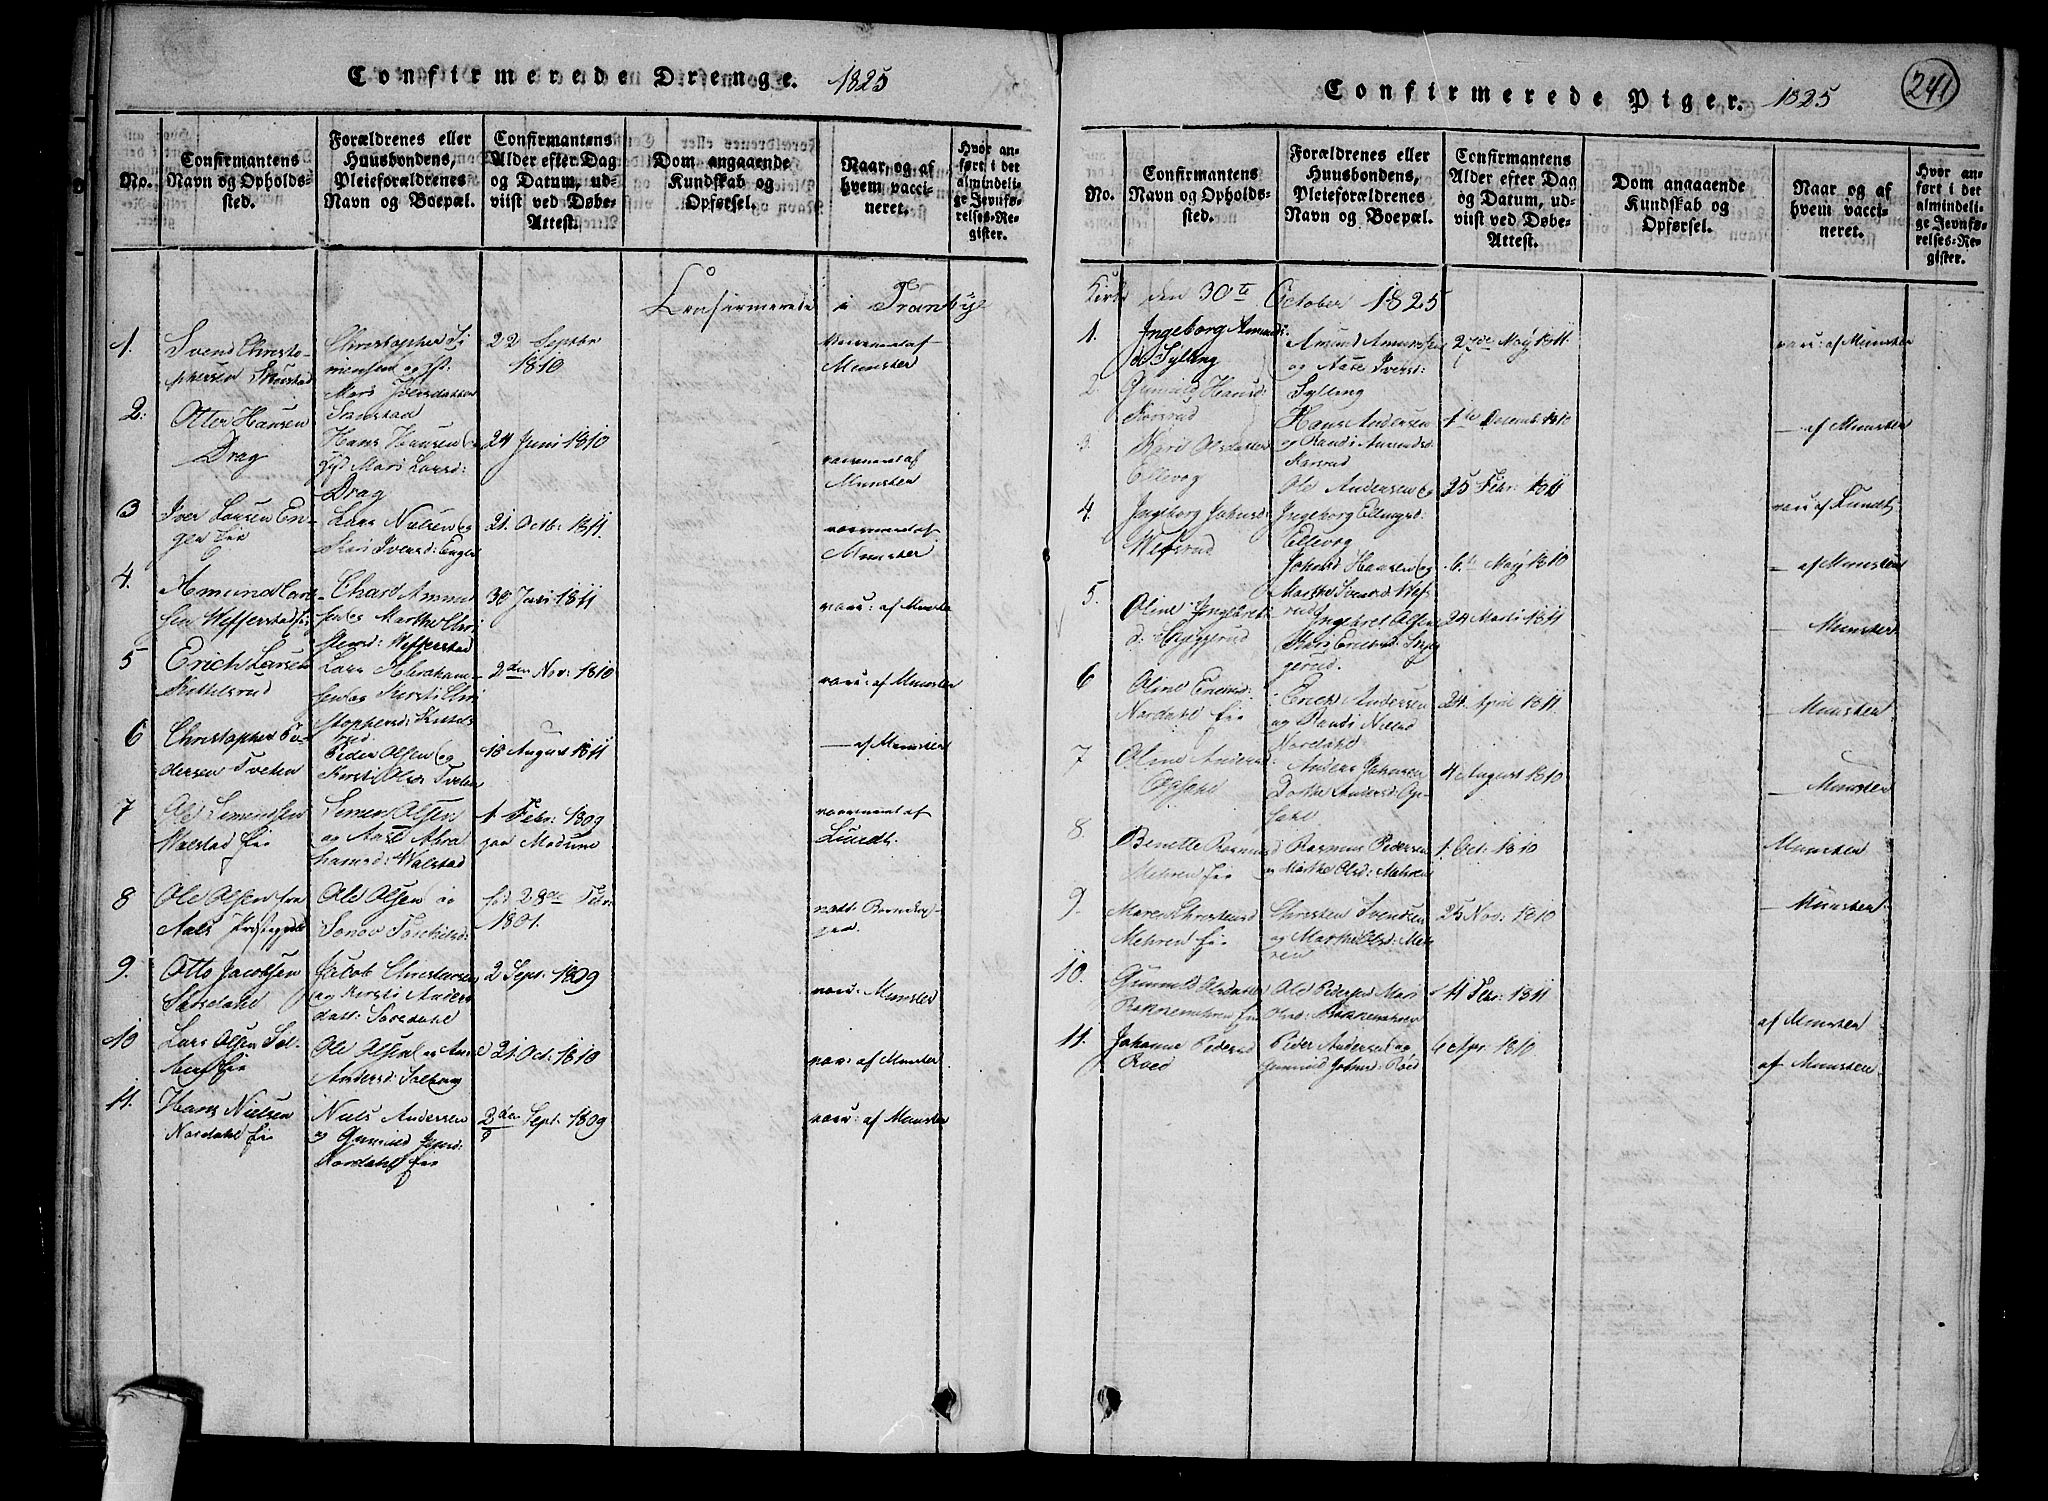 Confirmerede Drenge. 1825
No.
Confirmantens
Navn og Opholds-
sted.
Forældrenes eller
Huusbondens,
Pleieforældrenes
Navn og Boepæl.
Confirmantens
Alder efter Dag
og Datum, ud-
viist ved Døbe-
Attest.
Dom angaaende
Kundskab og
Opførsel.
Naar, og af
hvem vacci-
neret.
Hvor an-
ført i det
almindeli-
ge Jevnfø-
relses-Re-
gister.
Confirmerede i Tranbye
1.
Svend Christo-
phersen
Christopher Si-
mensen og
22 Septbr
1810
af
Munster
2.
Otter Hansen
Drag
Hans Hansen og
Mari Larsd:
Drag
24 Juni 1810
vaccineret af
Munster
3
Iver Larsen En-
gen Eie
Lars Nielsen og
Kari Iversd: Engen
21. Octb: 1811.
vaccineret af
Munster
4.
Amund
1811
vacc: af Munster
5
Erich Larsen
Kittelsrud
Lars Abraham-
sen og Kersti Chri
stophersd:
2den Nov: 1810
vacc: af Munster
6
Christopher Pe-
dersen Tveten
Peder Olsen og
Kersti Olsd Tveten
18 August 1811
— af Munster
7
Ole Simensen
Walstad Eie
Simen Olsen
og Aase Abra
hamsd: Walstad
1 Febr: 1809
paa Modum
vaccineret af
Lundt.
8
Ole Olsen fra
Aals Præstegield
Ole Olsen og
født 28de Febr:
1801.
9.
Otto Jacobsen
Jacob Christensen
og Kersti Anders
datt:
2 Sept: 1809
vacc: Munster
10
Lars Olsen Sol-
berg Eie
Ole Olsen og Anne
Andersd: Solberg
21. Oct: 1810
vacc: af Munster
11.
Hans Nielsen
Nordahl Eie
Niels Andersen
og Gunild
Nordahl Eie
2den Sept: 1809
vacc: af Munster
Confirmerede Piger. 1825
241
No.
Confirmantens
Navn og Opholds-
sted.
Forældrenes eller
Huusbondens,
Pleieforældrenes
Navn og Boepæl.
Confirmantens
Alder efter Dag
og Datum, ud-
viist ved Døbe-
Attest.
Dom angaaende
Kundskab og
Opførsel.
Naar og af
hvem vacci-
neret.
Hvor an-
ført i det
almindeli-
ge Jevnfø-
relses-Re-
gister.
Kirke den 30te October 1825
1.
Ingeborg Amunds:
d Sylling
Amund Amundsen
og Aase Iversd:
Sylling
2de May 1811.
vacc: af Munster
2
Gunild Hansd:
Hans Andersen
og Randi Amundsd
1te Decemb 1810
— af Munster
3
Kari Olsdatter
Ellevog
Ole Andersen og
Ingeborg
Ellevog
25 Febr: 1811
vacc: af Lundt
4.
Ingeborg Johnsd:
Johns Hansen og
Marthe
6te May 1810
— af Munster
5.
Oline Ingebret
d:
Ingebret Olsen
24 Marti 1811
— Munster
6
Oline Ericsd:
Nordahl Eie
Erich Andersen
og Randi Nielsd
Nordahl
24. April 1811.
— Munster
7
Oline Andersd:
Opsahl
Anders Johnsen
Dorthe Andersd: Op-
sahl
4 August 1810
— Munster
8
Benette Rasmusd
Mehren Eie
Rasmus Pedersen
og Marthe Olsd: Mehren
1. Oct: 1810
Munster
9.
Maren Christensd
Mehren Eie
Christen Svendsen
og Marthe Olsd: Meh
ren
25 Nov: 1810
— Munster
10.
Gunnild Olsdatter
Ole Pedersen Mari
Olsd:
11 Febr: 1811
af Munster
11.
Johanne Pedersd
Roed
Peder Andersen og
Gunnild Johnsd: Röed
6 Apr: 1810
af Munster